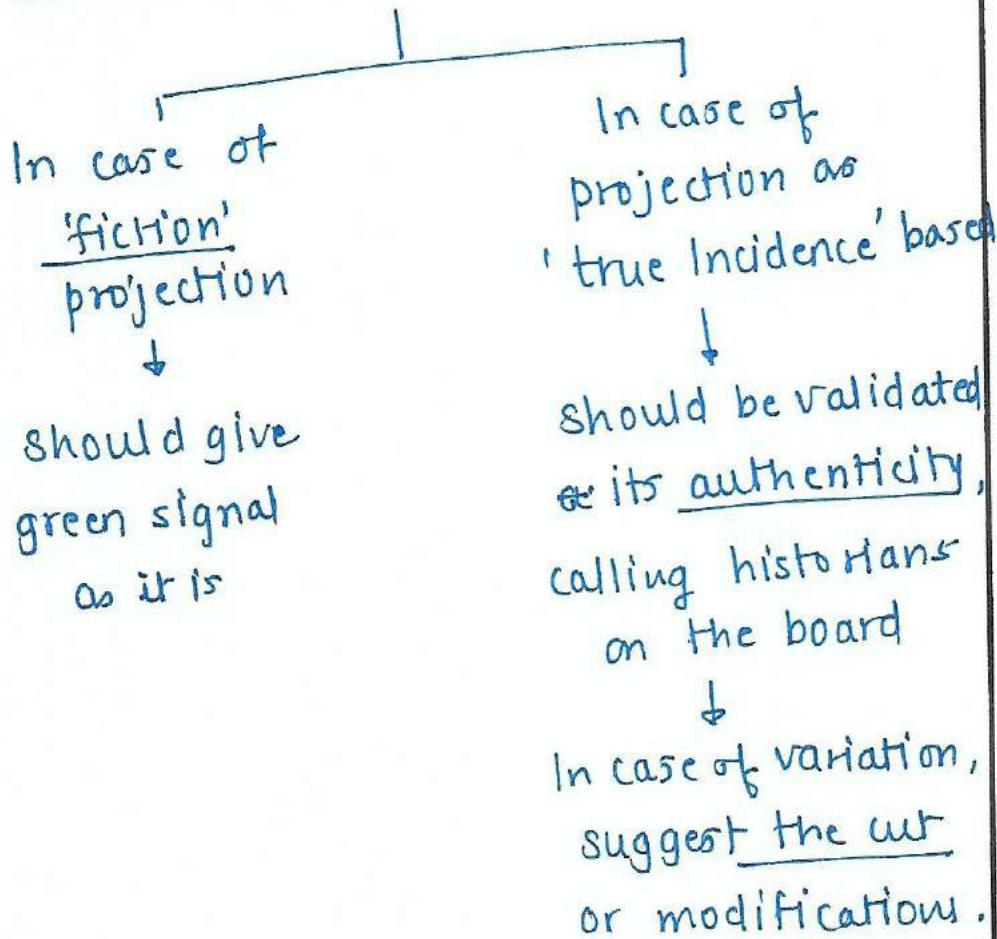 In case of
'fiction'
projection
should give
green signal
as it is
In case of
projection as
'true Incidence' based
should be validated
its authenticity,
calling historians
on the board
In case of variation,
suggest the cut
or modifications.